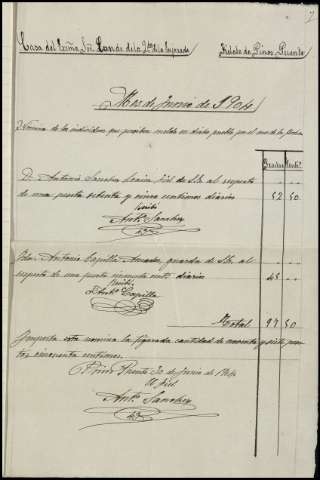 2
Casa del Exmo. Sor. Conde de la
Fielato de Pinos Puente
Mes de Junio de 1904
Nomina de los individuos que perciben sueldo en dicho pueblo, en el mes de la fecha
Pesetas Centi.
D. Antonio Sanchez fiel de S.E. al respecto
de una peseta setenta y cinco centimos diarios 52 50
Recibi
Anto. Sanchez
Antonio Capilla guarda de S.E. al
respecto de una peseta cincuenta diarios 45
Recibi
Anto. Capilla
Total 97 50
Importa esta nomina la figurada cantidad de noventa y siete pese
tas cincuenta centimos.
Pinos Puente 30 de Junio de 1904
El fiel
Anto. Sanchez